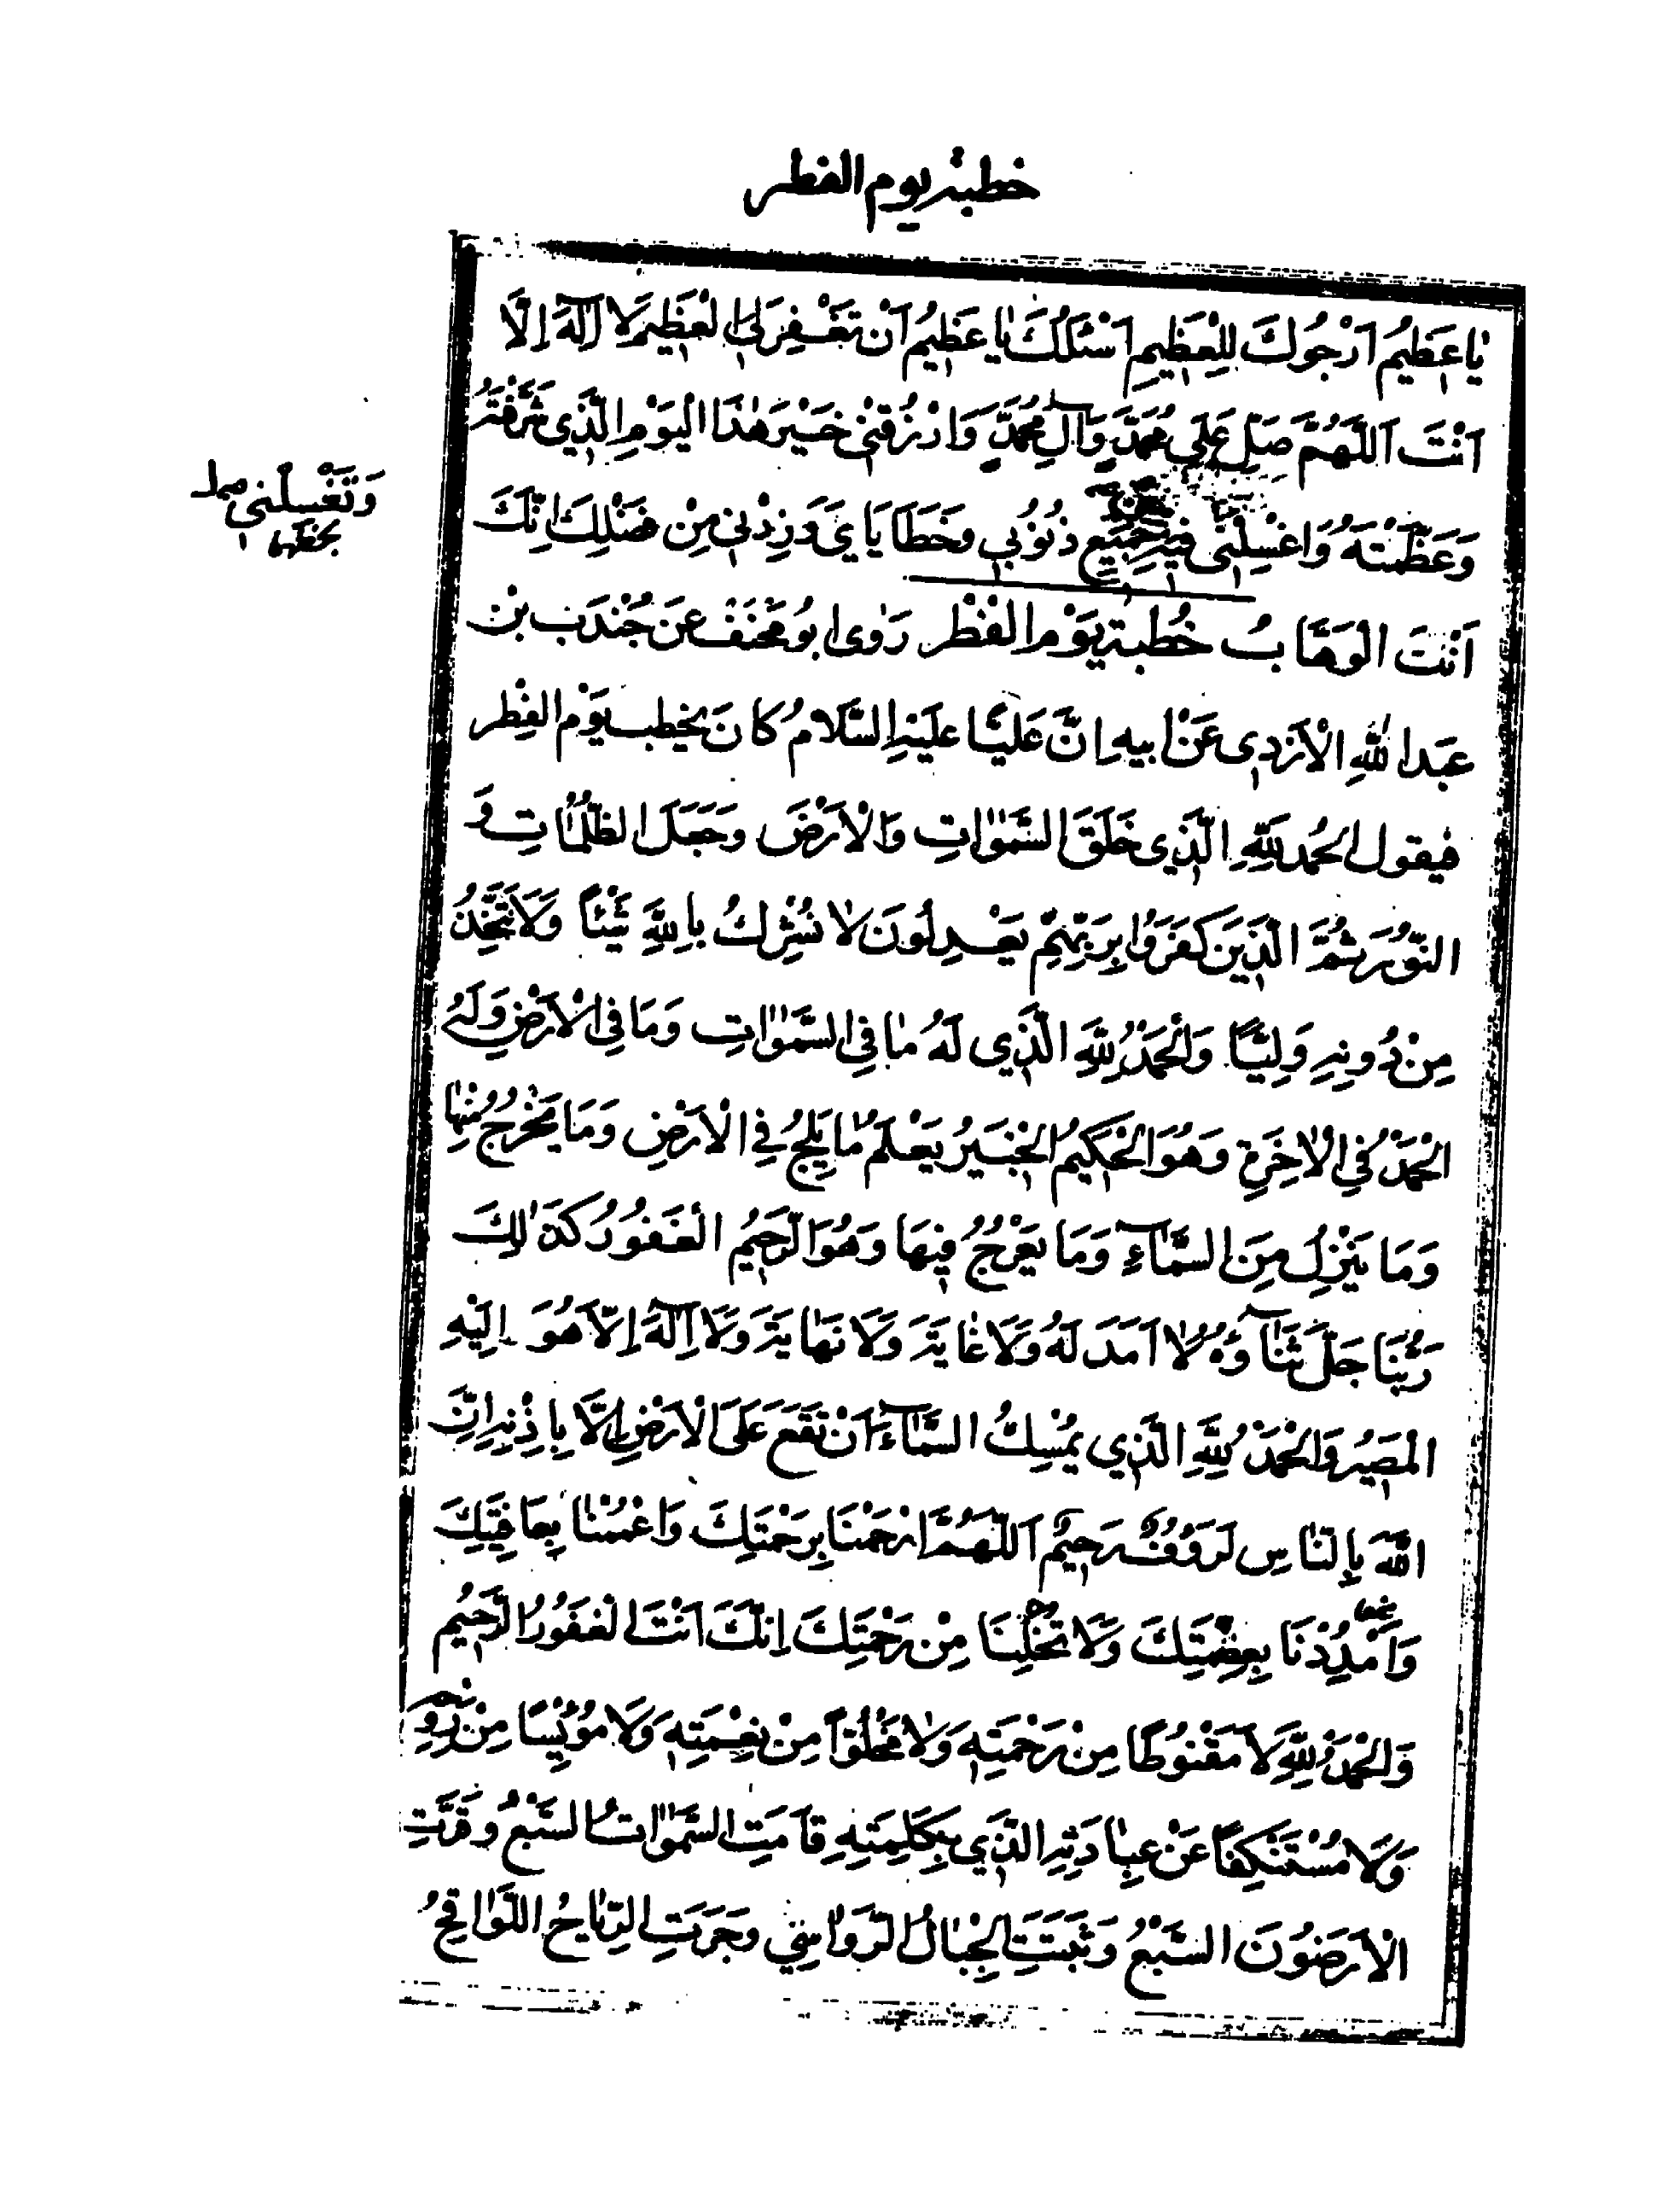 خطبة يوم الفطر
يٰا عَظيمُ اَرْجُوكَ لِلْعَظِيمِ اَسْئَلُكَ يٰا عَظِيمُ اَنْ تَغْفِرَ لِىَ الْعَظِيمَ لَا اِلٰهَ اِلَّا
اَنْتَ اَللَّهُمَّ صَلِّ عَلٰى مُحَمَّدٍ وَآلِ مُحَمَّدٍ وَارْزُقْنِي خَيْرَ هٰذَا الْيَوْمِ الَّذِي شَرَّفْتَهُ
وَعَظَّمْتَهُ وَاغْسِلْنِى فيهِ جَمِيعِ ذُنُوبِي وَخَطَايَايَ وَزِدْنِي مِنْ فَضْلِكَ اِنَّكَ
وَتَغْسِلَنِي صل
بخطهما
اَنْتَ الْوَهَّابُ خُطْبَةُ يَوْمِ الْفِطْرِ رَوٰى ابو مِخْنَفٍ عَنْ جُنْدَبِ بْنِ
عَبدِ اللّٰهِ الْاَزْدِى عَنْ ابيهِ اِنَّ عَلِيًّا عَلَيْهِ السَّلَامُ كَانَ يَخطب يَوْمَ الفِطْر
فيقول الحَمْد لِلّٰهِ الَّذِى خَلَقَ السَّمٰوٰاتِ وَالْاَرْضَ وَجَعَلَ الظُّلُمٰاتِ وَ
النُّورَ ثُمَّ الَّذِينَ كَفَرُوا بِرَبِّهِمْ يَعْدِلُونَ لٰا نُشْرِكُ بِاللّٰهِ شَيْئاً وَلَا نَتَّخِذُ
مِنْ دُونِهِ وَلِيًّا وَالْحَمْدُ لِلّٰهِ الَّذِي لَهُ مٰا فِي السَّمٰوٰاتِ وَمَا فِي الْاَرْضِ وَلَهُ
الْحَمْدُ فِي الْاٰخِرَةِ وَهُوَ الْحَكِيمُ الْخَبِيرُ يَعْلَمُ مٰا يَلِجُ فِي الْاَرْضِ وَمَا يَخْرُجُ مِنْهٰا
وَمَا يَنْزِلُ مِنَ السَّمٰاءِ وَمَا يَعْرُجُ فِيهَا وَهُوَ الرَّحِيمُ الْغَفُورُ كَذٰلِكَ
رَبُّنَا جَلَّ ثَنٰاؤُهُ لٰا اَمَدَ لَهُ وَلَا غٰايَةَ وَلَا نَهٰايَةَ وَلَا اِلٰهَ اِلَّا هُوَ اِلَيْهِ
الْمَصِيرُ وَالْحَمْدُ لِلّٰهِ الَّذِي يُمْسِكُ السَّمٰاءَ اَنْ تَقَعَ عَلَى الْاَرْضِ اِلَّا بِاِذْنِهِ اِنَّ
اللّٰهَ بِالنّٰاسِ لَرَؤُوفٌ رَحِيمٌ اَللّٰهُمَّ ارْحَمْنَا بِرَحْمَتِكَ وَاعْمُمْنٰا بِعَافِيَتِكَ
وَاَمْدِدْنَا بِعِصْمَتِكَ وَلَا تُخْلِنَا مِنْ رَحْمَتِكَ اِنَّكَ اَنْتَ الْغَفُورُ الرَّحِيمُ
وَالْحَمْدُ لِلّٰهِ لَا مَقْنُوطًا مِنْ رَحْمَتِهِ وَلٰا مَخْلُوّاً مِنْ نِعْمَتِهِ وَلَا مُؤْيِسًا مِنْ رَوْحِهِ
وَلَا مُسْتَنْكِفاً عَنْ عِبٰادَتِهِ الَّذِي بِكَلِمَتِهِ قٰامَتِ السَّمٰوٰاتُ السَّبْعُ وَقَرَّتِ
الْاَرَضُونَ السَّبْعُ وَثَبَتَتِ الْجِبٰالُ الرَّوٰاسِي وَجَرَتِ الرِّيٰاحُ اللَّوٰاقِحُ